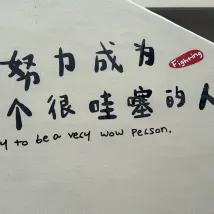 努力成为
Fighting
个很哇塞的人
y to be a very wow person.